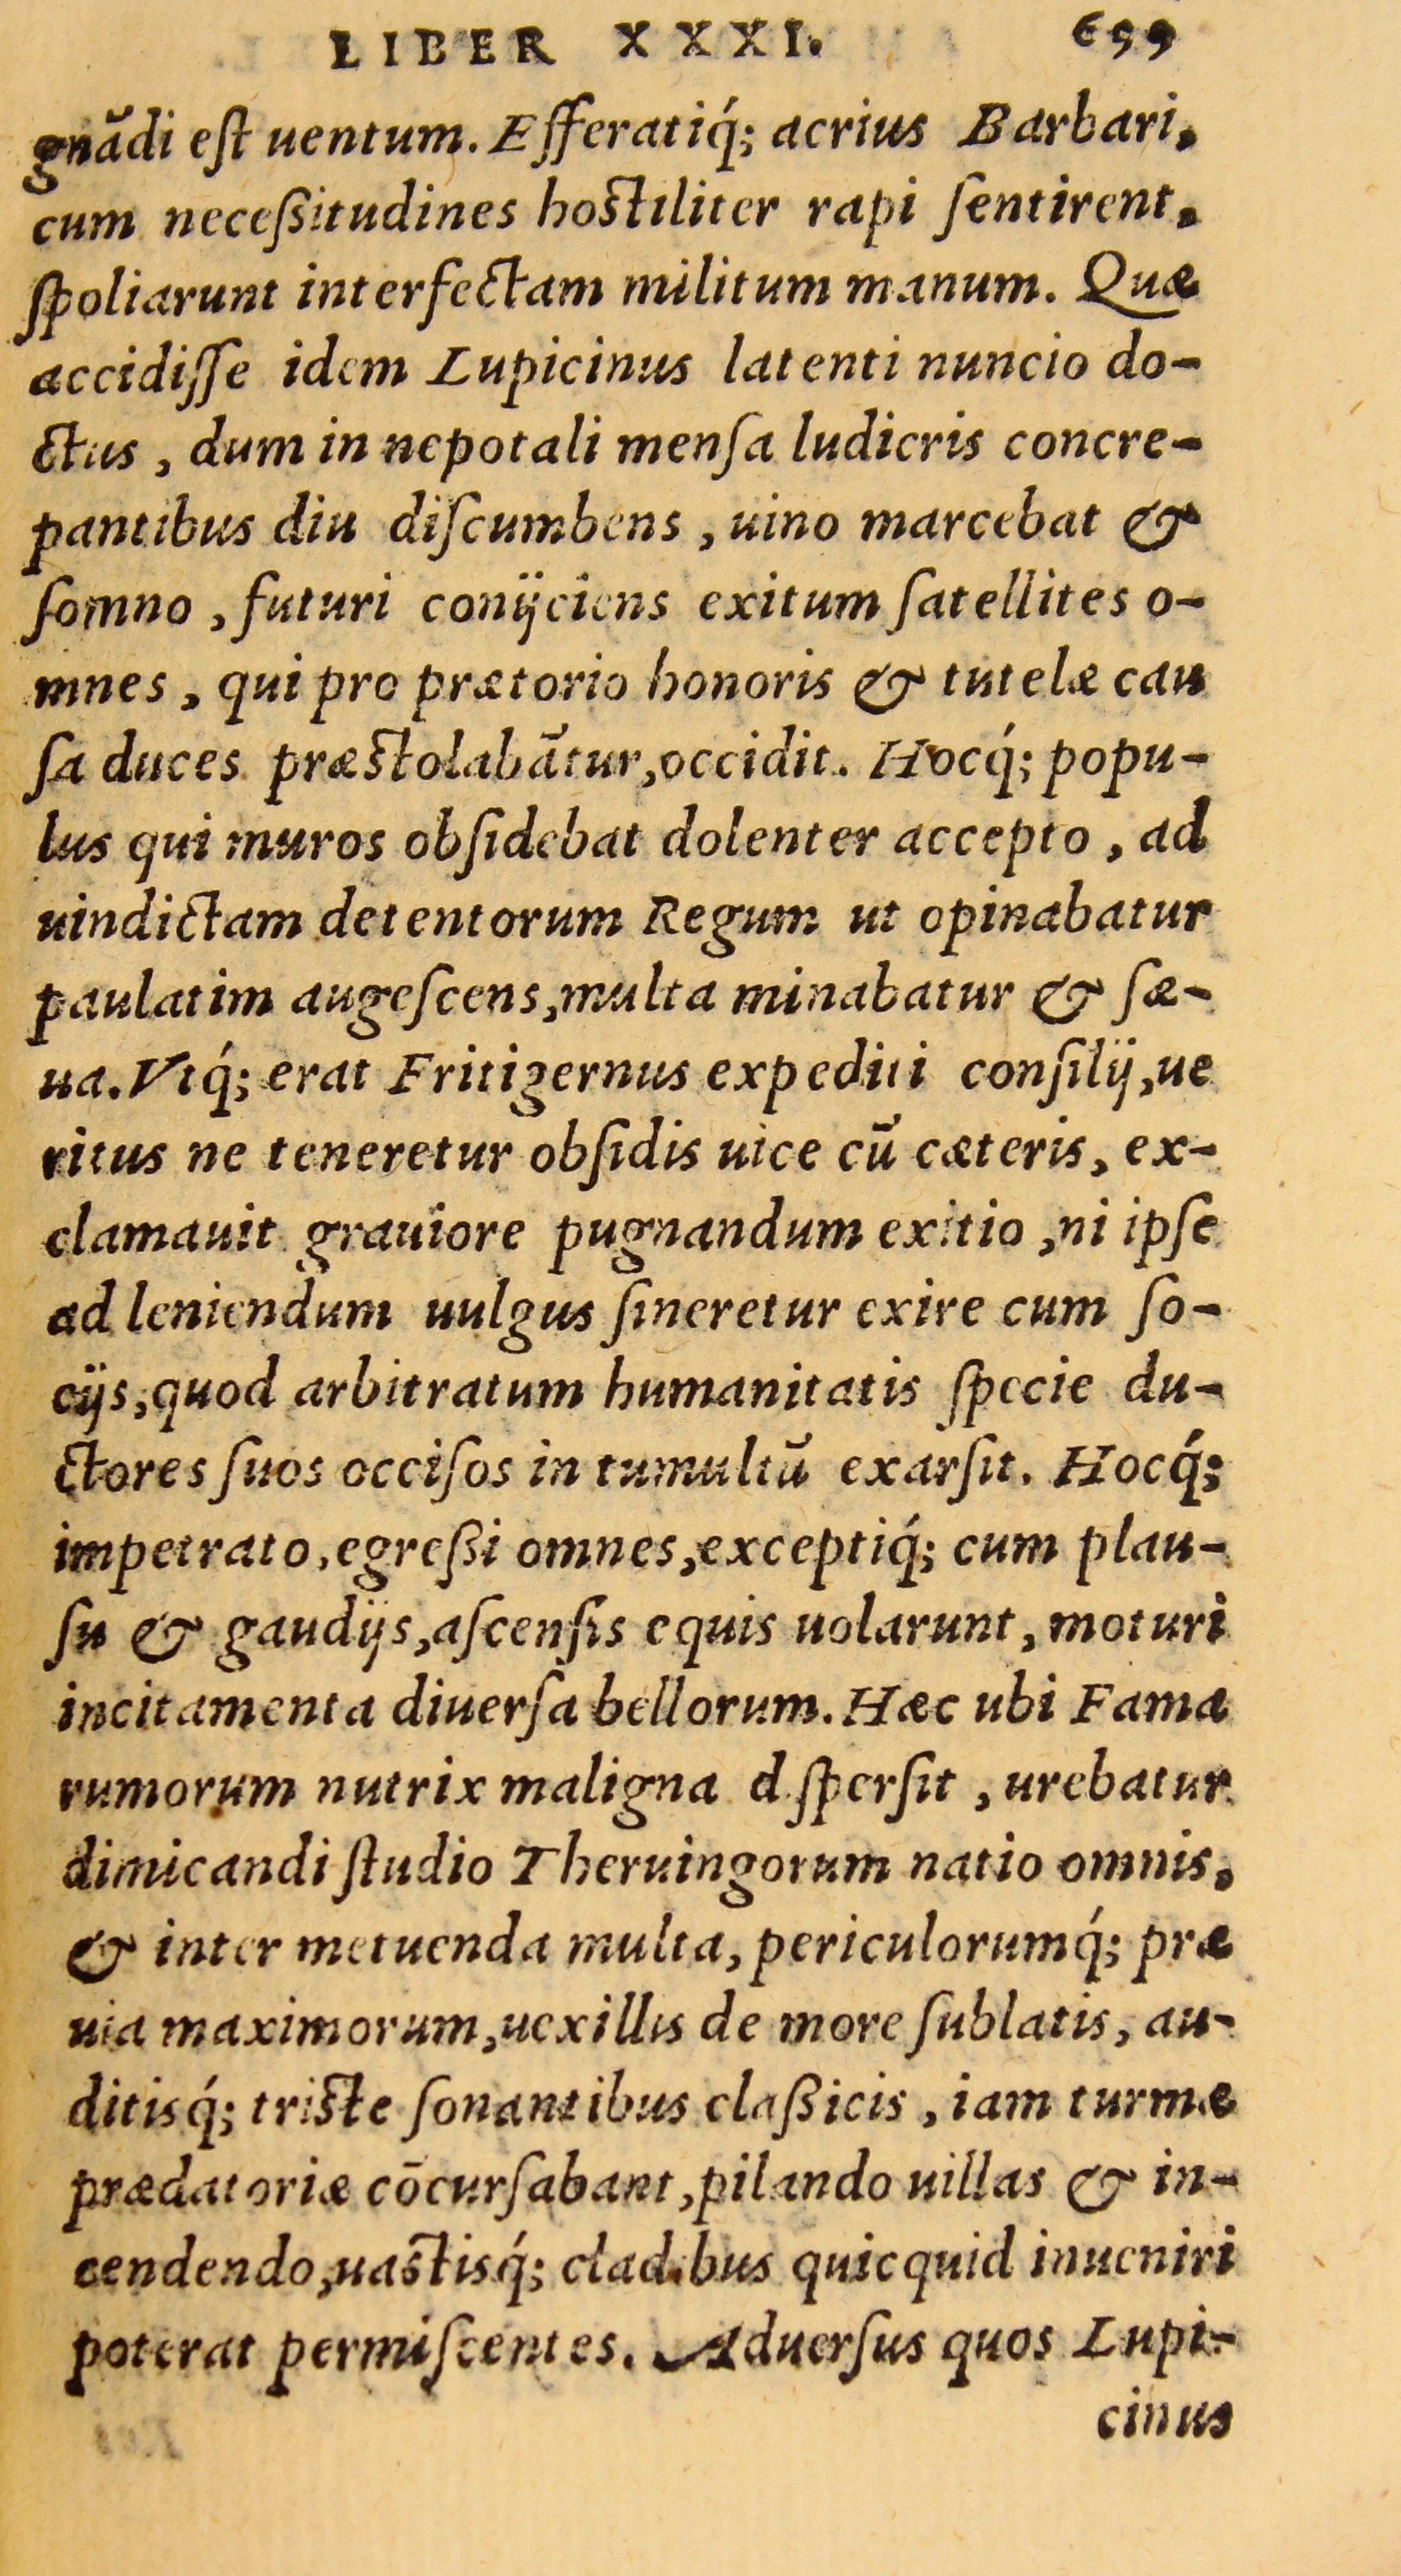 LIBER XXXI. 699
gnãdi eſt uentum. Efferatiq́; acrius Barbari,
cum neceßitudines hoſtiliter rapi ſentirent,
ſpoliarunt interfectam militum manum. Quæ
accidiſſe idem Lupicinus latenti nuncio do-
ctus, dum in nepotali menſa ludicris concre-
pantibus diu diſcumbens, uino marcebat &
ſomno, futuri conijciens exitum ſatellites o-
mnes, qui pro prætorio honoris & tutelæ cau
ſa duces præſtolabãtur, occidit. Hocq́; popu-
lus qui muros obſidebat dolenter accepto, ad
uindictam detentorum Regum ut opinabatur
paulatim augeſcens, multa minabatur & ſæ-
ua. Vtq́; erat Fritigernus expediti conſilij, ue
ritus ne teneretur obſidis uice cū cæteris, ex-
clamauit grauiore pugnandum exitio, ni ipſe
ad leniendum uulgus ſineretur exire cum ſo-
cijs, quod arbitratum humanitatis ſpecie du-
ctores ſuos occiſos in tumultū exarſit. Hocq́;
impetrato, egreßi omnes, exceptiq́; cum plau-
ſu & gaudijs, aſcenſis equis uolarunt, moturi
incitamenta diuerſa bellorum. Hæc ubi Fama
rumorum nutrix maligna d ſperſit, urebatur
dimicandi ſtudio Theruingorum natio omnis,
& inter metuenda multa, periculorumq́; præ
uia maximorum, uexillis de more ſublatis, au-
ditisq́; triſte ſonantibus claßicis, iam turmæ
prædatoriæ cōcurſabant, pilando uillas & in-
cendendo, uaſtisq́; cladibus quicquid inueniri
poterat permiſcentes. Aduerſus quos Lupi-
cinus